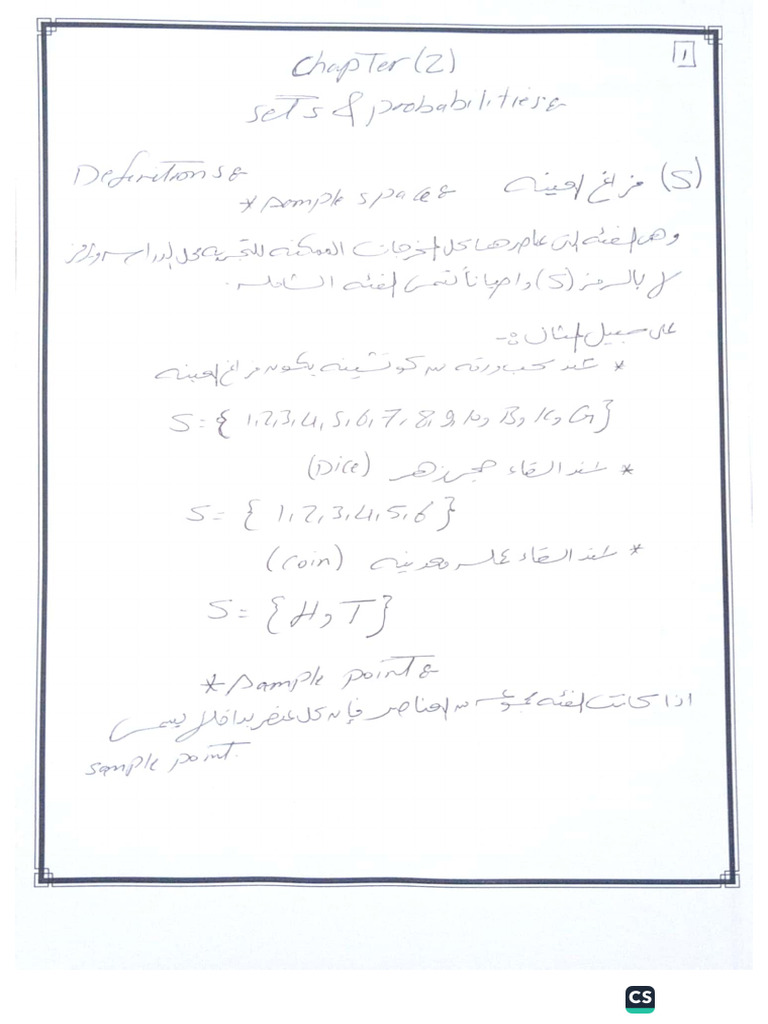 1
Chapter (2)
sets & probabilities:
Definitions:
* Sample space: فراغ العينه (S)
وهى الفئه التى عناصرها كل المخرجات الممكنه للتجربه محل الدراسه ويرمز
لها بالرمز (S) واحياناً تسمى الفئه الشامله.
على سبيل المثال :-
* عند سحب ورقه من كوتشينه يكون فراغ العينه
S = { 1, 2, 3, 4, 5, 6, 7, 8, 9, 10, B, K, G }
* عند القاء حجر زهر (Dice)
S = { 1, 2, 3, 4, 5, 6 }
* عند القاء عمله معدنيه (Coin)
S = { H, T }
* Sample point:
اذا كانت الفئه مجموعه من العناصر فإن كل عنصر بداخلها يسمى
sample point.
CS